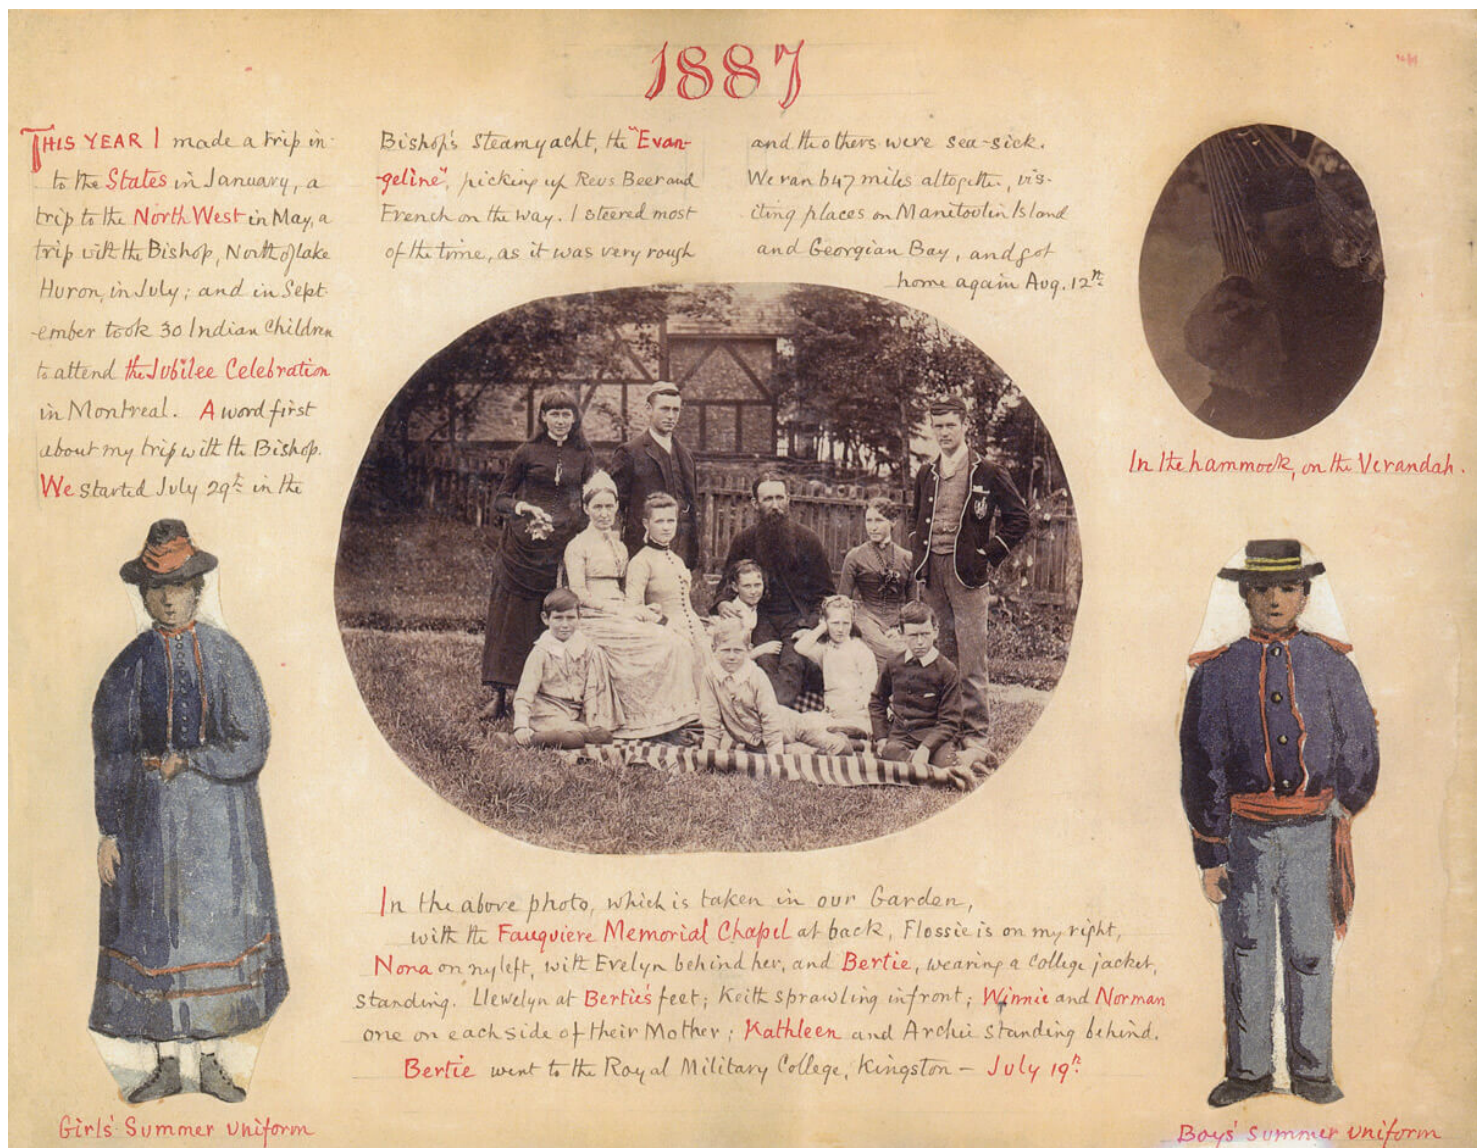 1887
THIS YEAR I made a trip in-
to the States in January, a
trip to the North West in May, a
trip with the Bishop, North of Lake
Huron, in July; and in Sept-
-ember took 30 Indian Children
to attend the Jubilee Celebration
in Montreal. A word first
about my trip with the Bishop.
We started July 29th in the
Bishop's Steamyacht, the "Evan-
-geline", picking up Revs Beer and
French on the way. I steered most
of the time, as it was very rough
and the others were sea-sick.
We ran 647 miles altogether, vis-
iting places on Manitoulin Island
and Georgian Bay, and got
home again Aug. 12th
In the hammock, on the Verandah.
In the above photo, which is taken in our Garden,
with the Fauquiere Memorial Chapel at back, Flossie is on my right,
Nona on my left, with Evelyn behind her, and Bertie, wearing a College jacket,
standing. Llewelyn at Bertie's feet; Keith sprawling in front; Winnie and Norman
one on each side of their Mother; Kathleen and Archie standing behind.
Bertie went to the Royal Military College, Kingston — July 19th
Girls' Summer Uniform
Boys' Summer Uniform